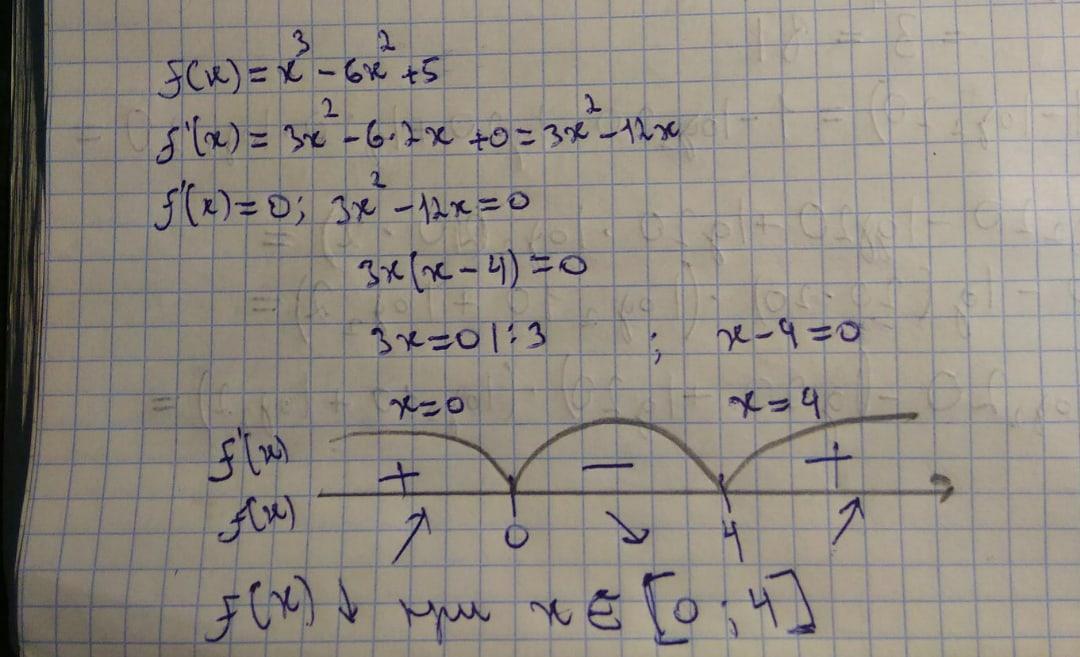 f(x) = x³ - 6x² + 5
f'(x) = 3x² - 6·2x + 0 = 3x² - 12x
f'(x) = 0; 3x² - 12x = 0
3x(x - 4) = 0
3x = 0 | : 3 ; x - 4 = 0
x = 0 x = 4
f'(x) + - +
f(x) ↗ 0 ↘ 4 ↗
f(x) ↓ при x ∈ [0 ; 4]